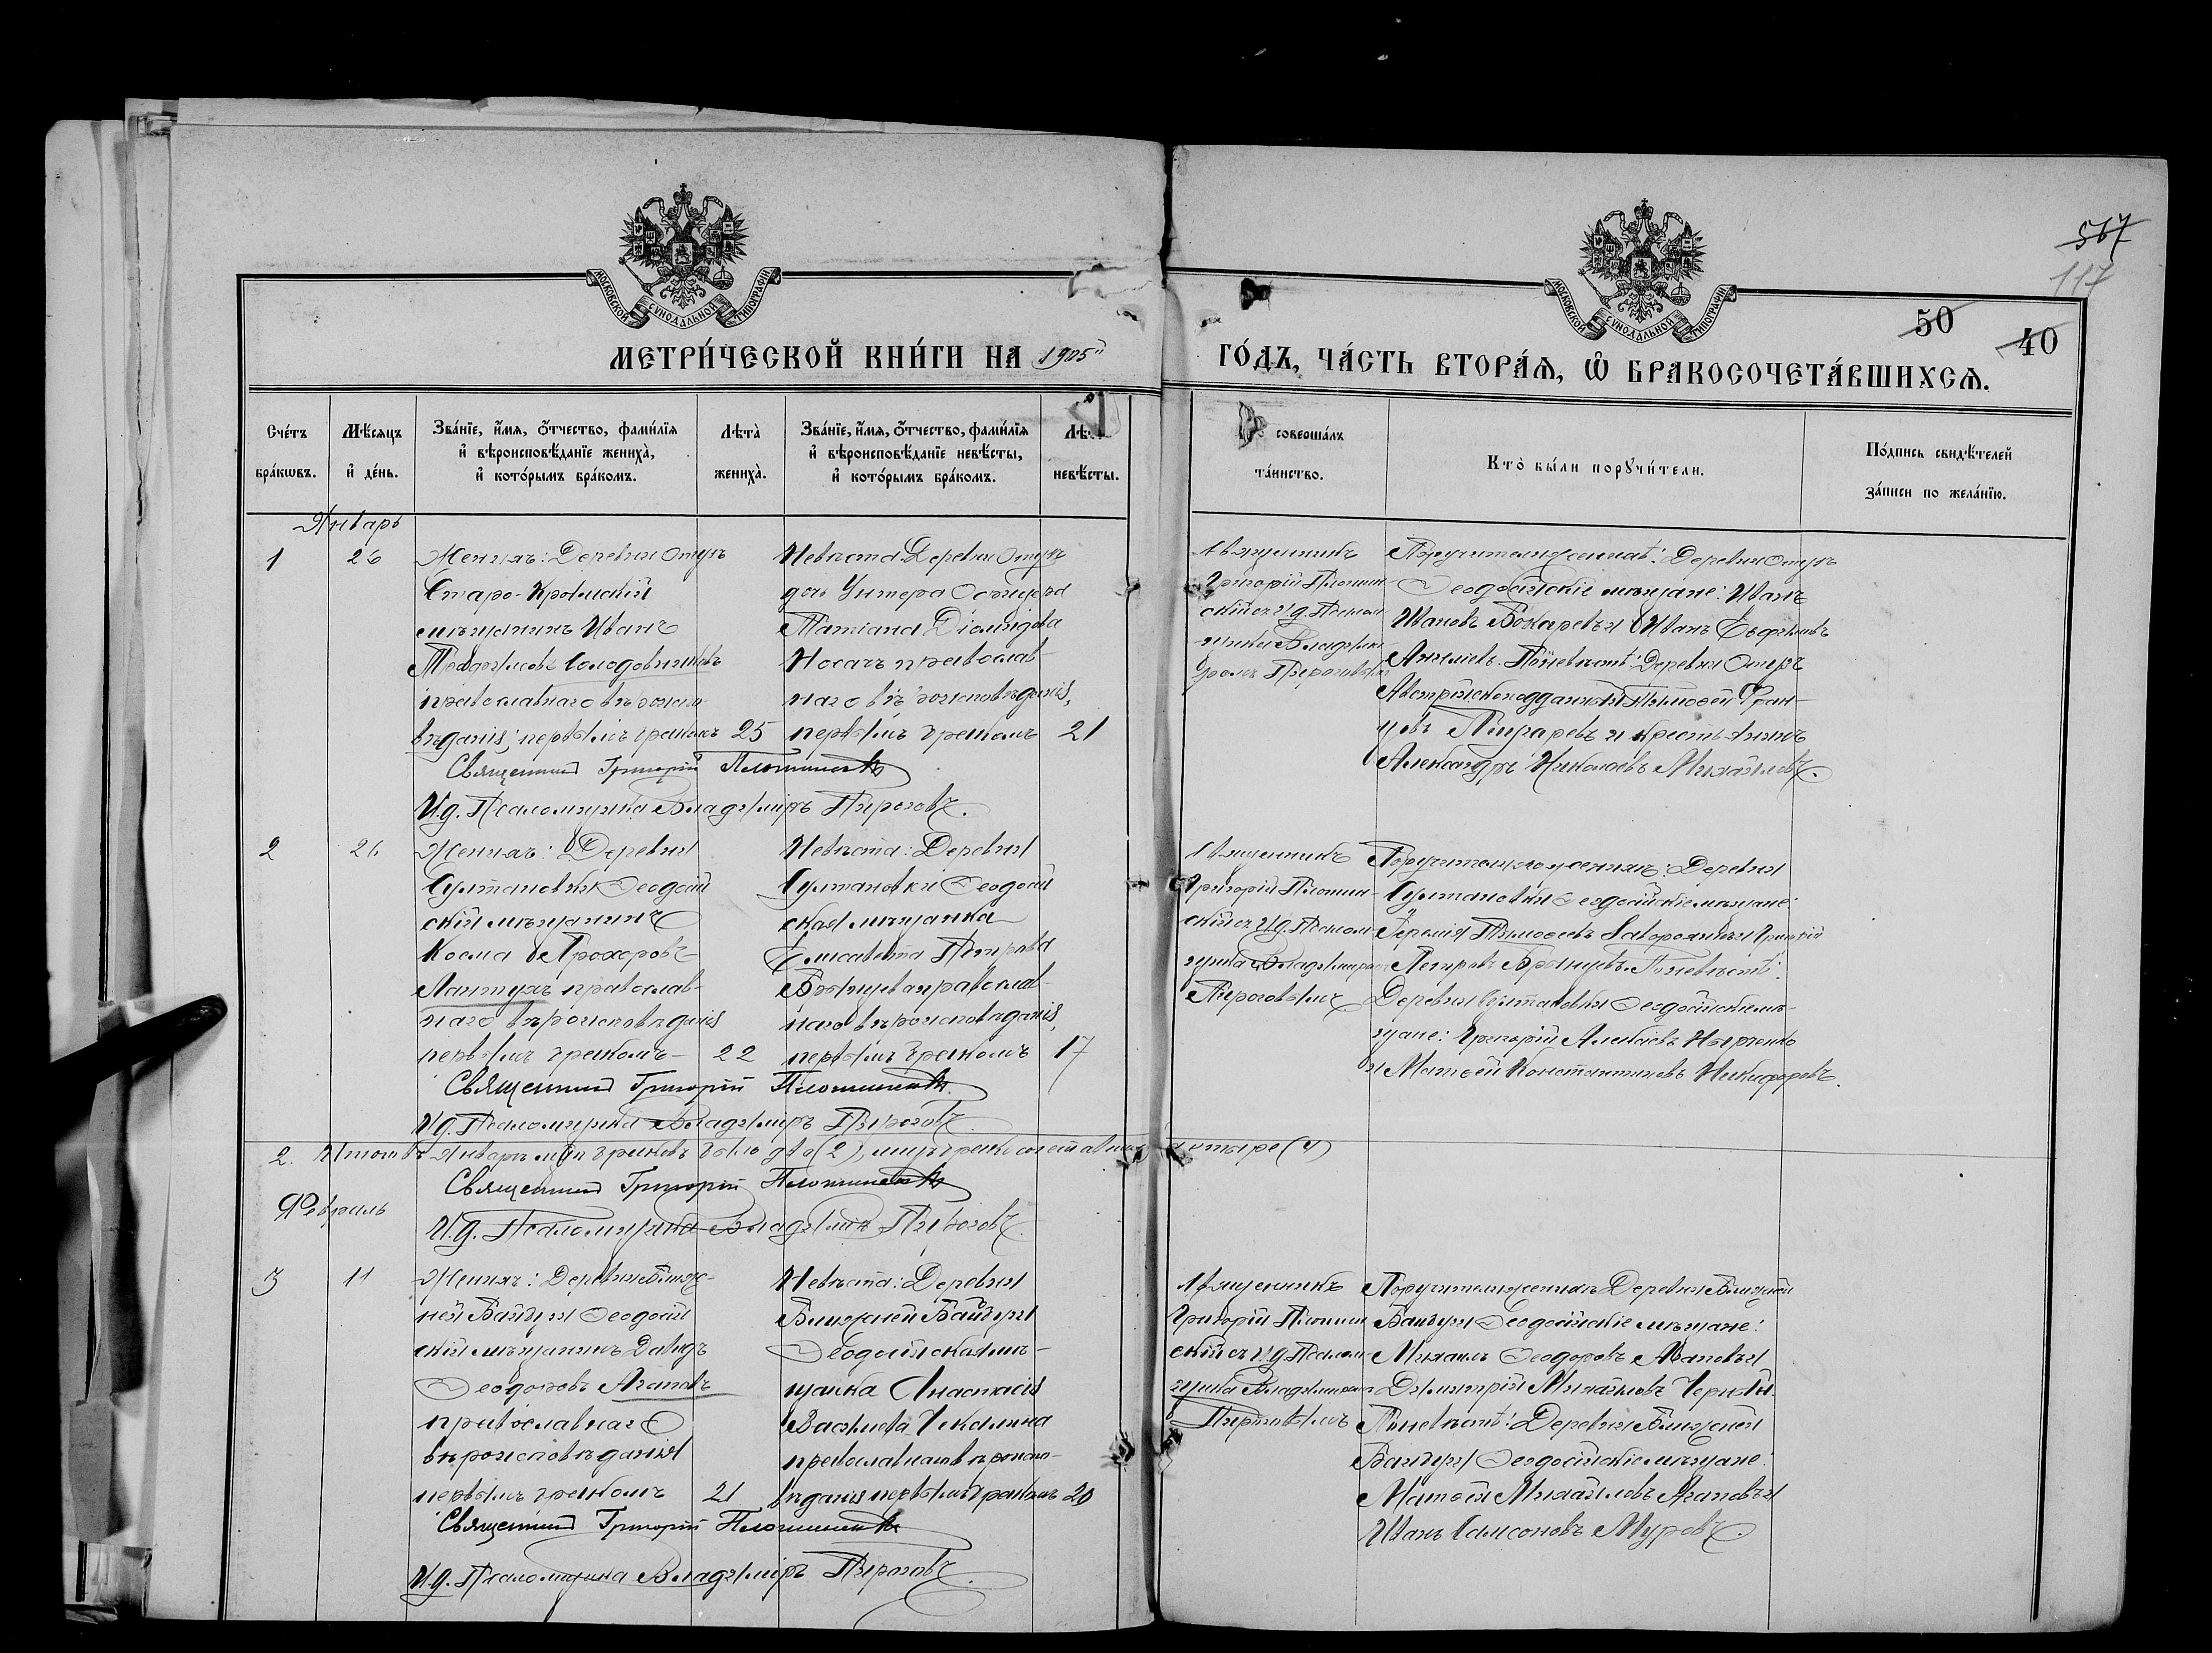 567
117
50
40
МОСКОВСКОЙ СУНОДАЛЬНОЙ ТИПОГРАФІИ
МОСКОВСКОЙ СУНОДАЛЬНОЙ ТИПОГРАФІИ
МЕТРИ́ЧЕСКОЙ КНИ́ГИ НА 1905й ГО́ДЪ, ЧА́СТЬ ВТОРА́Ѧ, Ѽ БРАКОСОЧЕТА́ВШИХСѦ.
Сче́тъ бра́кѡвъ.
Мѣ́сяцъ и҆ де́нь.
Зва́нїе, и҆́мѧ, ѻ҆́тчество, фами́лїѧ и҆ вѣроисповѣ́данїе жениха̀, и҆ кото́рымъ бра́комъ.
Лѣта̀ жениха̀.
Зва́нїе, и҆́мѧ, ѻ҆́тчество, фами́лїѧ и҆ вѣроисповѣ́данїе невѣ́сты, и҆ кото́рымъ бра́комъ.
невѣ́сты.
соверша́лъ та́инство.
Кто̀ бы́ли порꙋчи́тели.
По́дпись свидѣ́телей за́писи по жела́нїю.
Январь
1
26
Женихъ: Деревни Отузъ
Старо-Крымскій
мѣщанинъ Иванъ
Солодовниковъ
православнаго вѣроиспо-
вѣданія, первымъ бракомъ 25
Невѣста: Деревни Отузъ
дочь Унтеръ Офицера
Носачъ православ-
наго вѣроисповѣданія,
первымъ бракомъ 21
Священникъ
Григорій
скій съ И. д. Псалом-
щика Влади-
Пироговымъ
Поручители по женихѣ: Деревни Отузъ
Ѳеодосійскіе мѣщане: Иванъ
Ивановъ Бокаревъ и Иванъ
По невѣстѣ: Деревни Отузъ
Тимоѳей Фран-
цовъ и крестьянинъ
Александръ Николаевъ Михайловъ.
Священникъ Григорій
И. д. Псаломщика Владиміръ Пироговъ.
2
26
Женихъ: Деревни
Султановки Ѳеодосій
скій мѣщанинъ
Косма Прохоровъ
Лантухъ православ-
наго вѣроисповѣданія
первымъ бракомъ 22
Невѣста: Деревни
Султановки Ѳеодосій
ская мѣщанка
Елисавета Петрова
православ-
наго вѣроисповѣданія,
первымъ бракомъ 17
Священникъ
Григорій
скій съ И. д. Псалом
щика Владиміромъ
Пироговымъ
Поручители по женихѣ: Деревни
Султановки Ѳеодосійскіе мѣщане:
Тимоѳеевъ и Григорій
Петровъ По невѣстѣ:
Деревни Султановки Ѳеодосійскіе мѣ-
щане: Григорій
и Матѳей Константиновъ Никифоровъ.
Священникъ Григорій
И. д. Псаломщика Владиміръ Пироговъ
2. Итого въ Январѣ м-цѣ браковъ было два (2), лицъ бракосочетавшихся четыре (4)
Священникъ Григорій
Февраль
И. д. Псаломщика Владиміръ Пироговъ.
3
11
Женихъ: Деревни Ближ-
ней Байбуги Ѳеодосій
скій мѣщанинъ Давидъ
Ѳеодоровъ Агаповъ
православнаго
вѣроисповѣданія
первымъ бракомъ 21
Невѣста: Деревни
Ближней Байбуги
Ѳеодосійская мѣ-
щанка Анастасія
Чекалина
православнаго вѣроиспо-
вѣданія первымъ бракомъ 20
Священникъ
Григорій
скій съ И. д. Псалом-
щика Владиміромъ
Пироговымъ
Поручители по женихѣ: Деревни Ближней
Байбуги Ѳеодосійскіе мѣщане:
Михаилъ Ѳеодоровъ Агаповъ и
Димитрій Михайловъ
По невѣстѣ: Деревни Ближней
Байбуги Ѳеодосійскіе мѣщане:
Матѳей Михайловъ Агаповъ и
Иванъ Самсоновъ Муровъ.
Священникъ Григорій
И. д. Псаломщика Владиміръ Пироговъ.